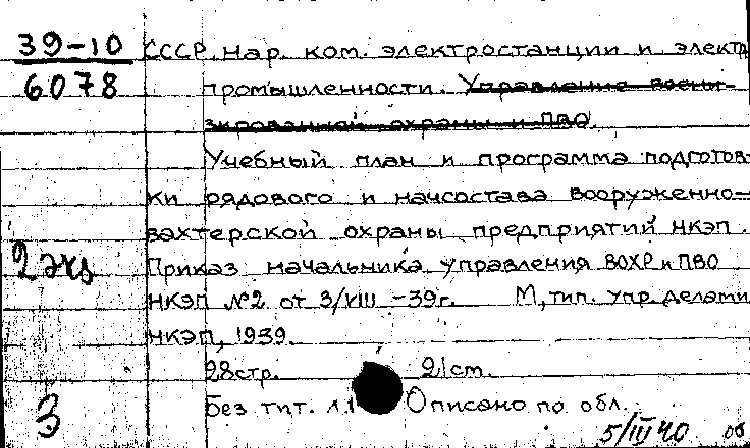 39-10
6078
СССР. Нар. ком. электростанции и электр
промышленности. Управление воени-
зированной охраны и ПВО.
Учебный план и программа подготов-
ки рядового и начсостава вооруженно-
вахтерской охраны предприятий НКЭП.
2 экз
Приказ начальника управления ВОХР и ПВО
НКЭП №2 от 3/VIII -39г. М, тип. упр. делами
НКЭП, 1939.
28 стр. 21 см.
3
Без тит. л. Описано по обл.
5/III 40